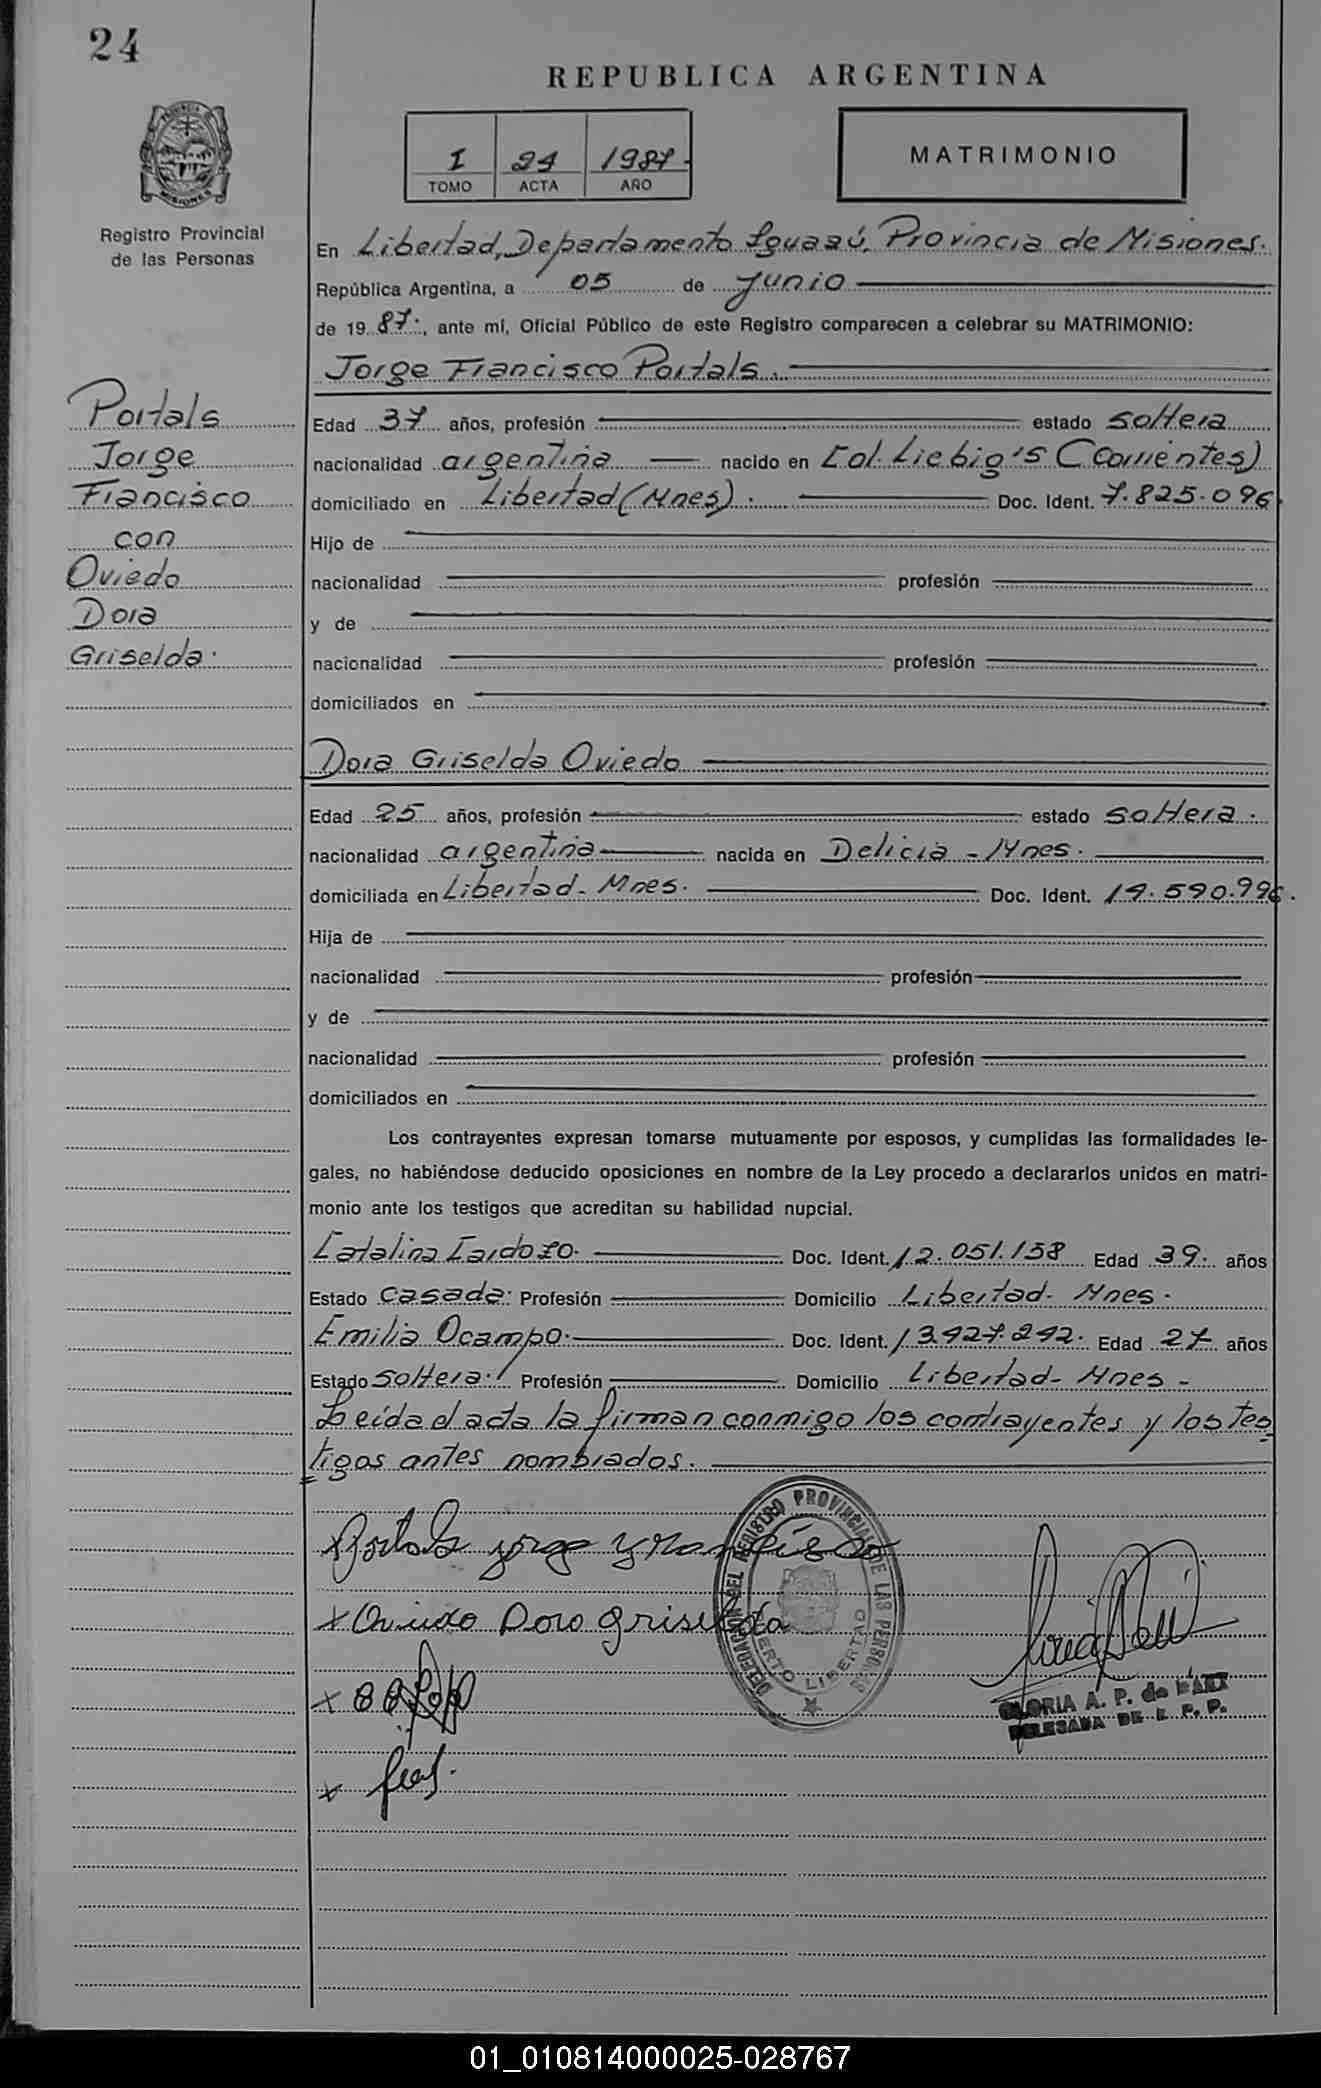 24
REPUBLICA ARGENTINA
I 24 1987.
TOMO ACTA AÑO
MATRIMONIO
PROVINCIA DE MISIONES
Registro Provincial
de las Personas
En Libertad, Departamento Iguazú, Provincia de Misiones.
República Argentina, a 05 de junio
de 1987., ante mí, Oficial Público de este Registro comparecen a celebrar su MATRIMONIO:
Jorge Francisco Portals.
Portals
Jorge
Francisco
con
Oviedo
Dora
Griselda.
Edad 37 años, profesión estado soltera
nacionalidad argentina nacido en Col. Liebig's (Corrientes)
domiciliado en Libertad (Mnes). Doc. Ident. 7.825.096.
Hijo de
nacionalidad profesión
y de
nacionalidad profesión
domiciliados en
Dora Griselda Oviedo
Edad 25 años, profesión estado soltera.
nacionalidad argentina nacida en Delicia - Mnes.
domiciliada en Libertad - Mnes. Doc. Ident. 14.590.996.
Hija de
nacionalidad profesión
y de
nacionalidad profesión
domiciliados en
Los contrayentes expresan tomarse mutuamente por esposos, y cumplidas las formalidades le-
gales, no habiéndose deducido oposiciones en nombre de la Ley procedo a declararlos unidos en matri-
monio ante los testigos que acreditan su habilidad nupcial.
Catalina Cardozo. Doc. Ident. 12.051.138 Edad 39. años
Estado casada. Profesión Domicilio Libertad - Mnes.
Emilia Ocampo. Doc. Ident. 13.927.292. Edad 27 años
Estado soltera. Profesión Domicilio Libertad - Mnes -
Leída el acta la firman conmigo los contrayentes y los tes
tigos antes nombrados.
x Portals Jorge Francisco
x Oviedo Dora Griselda
x
x
DELEGACION DEL REGISTRO PROVINCIAL DE LAS PERSONAS
PUERTO LIBERTAD
GLORIA A. P. de
DELEGADA DE R. P. P.
01_010814000025-028767